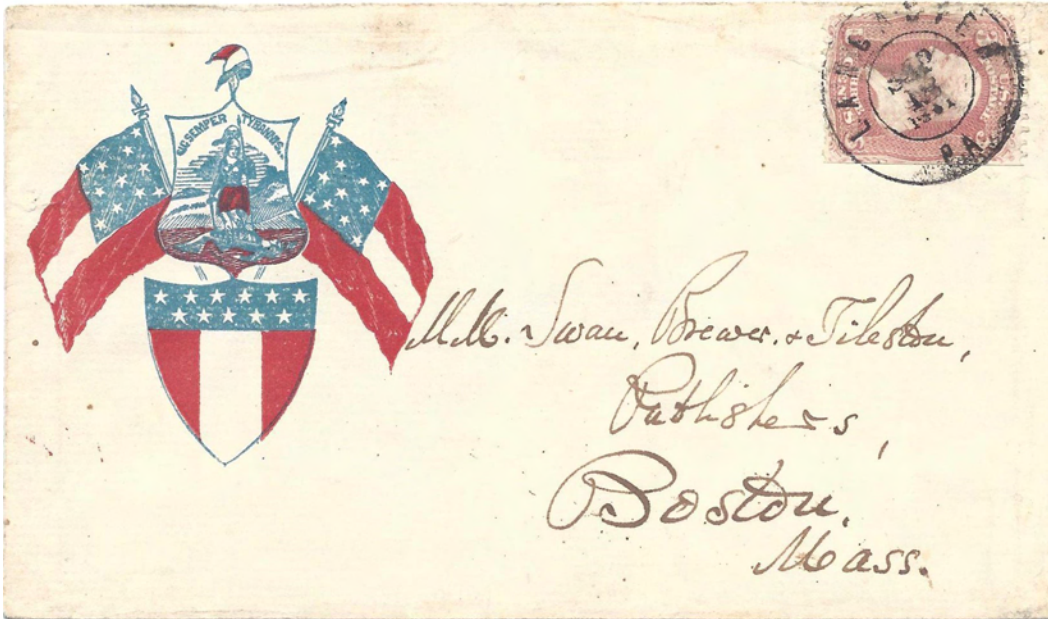 SIC SEMPER TYRANNIS
LANCASTER
SEP
18
1861
PA.
M.M. Swan, Brewer, & Tileston,
Publishers,
Boston,
Mass.